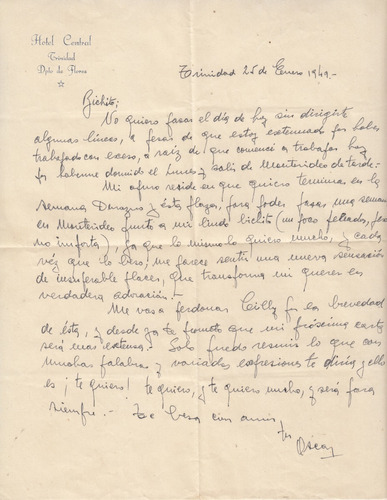 Hotel Central
Trinidad
Dpto de Flores
Trinidad 25 de Enero 1949.-
Bichito;
No quiero pasar el día de hoy sin dirigirte
algunas líneas, a pesar de que estoy extenuado por haber
trabajado con exceso, a raíz de que comencé a trabajar hoy
por haberme dormido el Lunes y salir de Montevideo de tarde.-
Mi apuro reside en que quiero terminar en la
semana Durazno y ésta plaza, para poder pasar una semana
en Montevideo junto a mi lindo bichito (un poco peleador, pero
no importa), ya que lo mismo lo quiero mucho, y cada
véz que lo beso, me parece sentir una nueva sensación
de insuperable placer, que transforma mi querer en
verdadera adoración.-
Me vas a perdonar Cilly por la brevedad
de ésta, y desde ya te prometo que mi próxima carta
será más extensa.- Solo puedo resumir lo que con
muchas palabras y variadas expresiones te diría y ello
es ¡te quiero! te quiero, ¡y te quiero mucho, y será para
siempre.- Te besa con amor
tu
Oscar